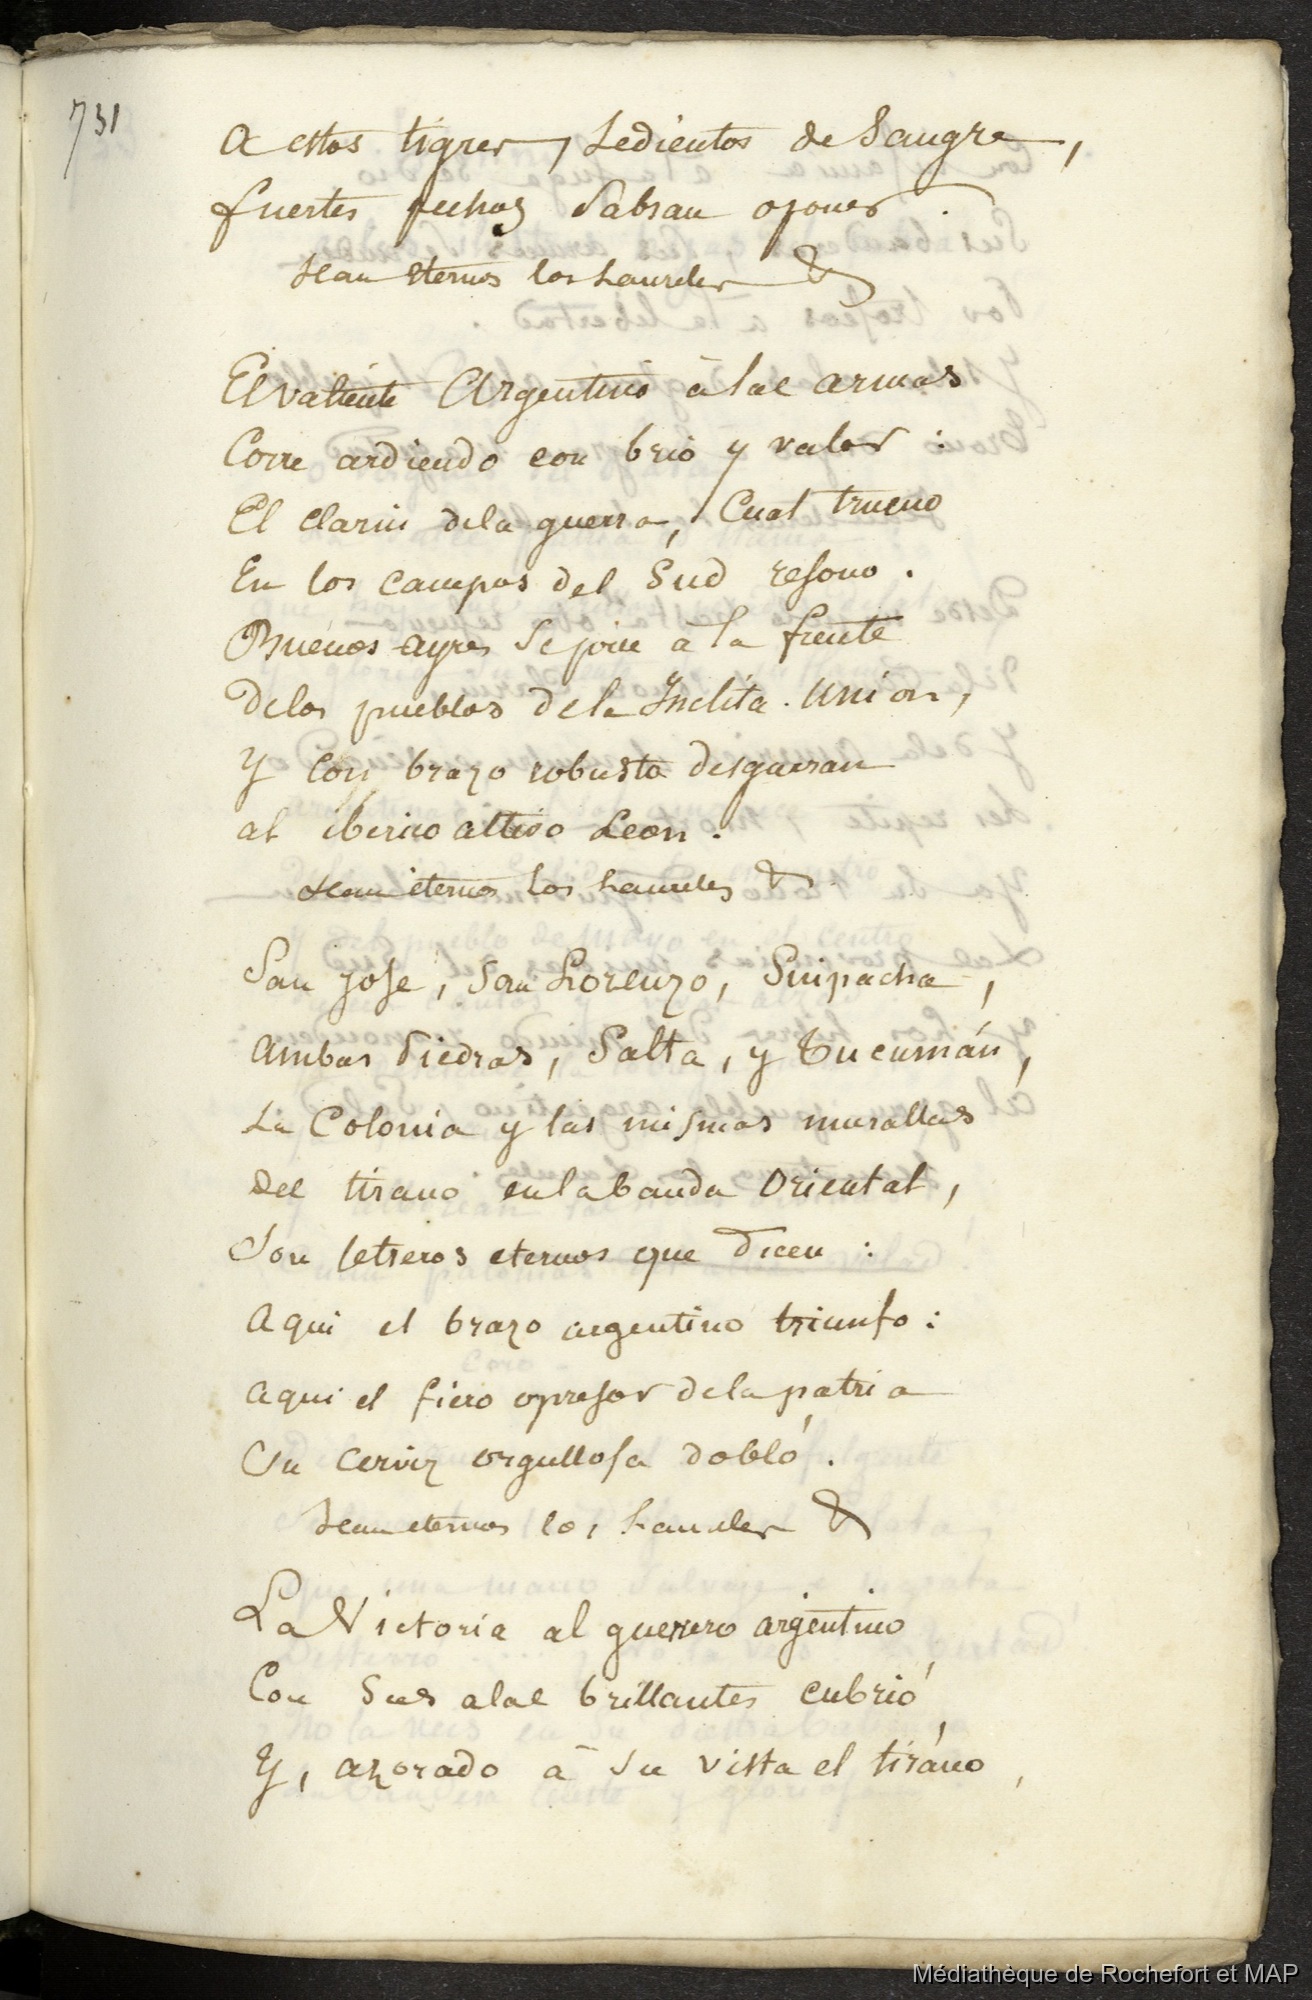 731
A estos tigres, sedientos de Sangre,
fuertes pechos Sabran oponer.
Sean eternos los Laureles &
El valiente Argentino à las armas
Corre ardiendo con brio y valor :
El clarin dela guerra, Cual trueno
En los campos del Sud resono.
Buenos ayres Se pone à la frente
Delos pueblos dela Inclita. Union,
Y con brazo robusto desgarran
al iberico altivo Leon.
Sean eternos los Laureles &
San Jose, San Lorenzo, Suipacha,
Ambas Piedras, Salta, y Tucumán,
La Colonia y las mismas murallas
Del tirano en la banda Oriental,
Son letreros eternos que dicen :
Aqui el brazo argentino triunfo :
Aqui el fiero opresor dela patria
Su cerviz orgullosa dobló.
Sean eternos los Laureles &
La Victoria al guerrero argentino
Con Sus alas brillantes cubrió,
Y, azorado à Su vista el tiráno,
Médiathèque de Rochefort et MAP